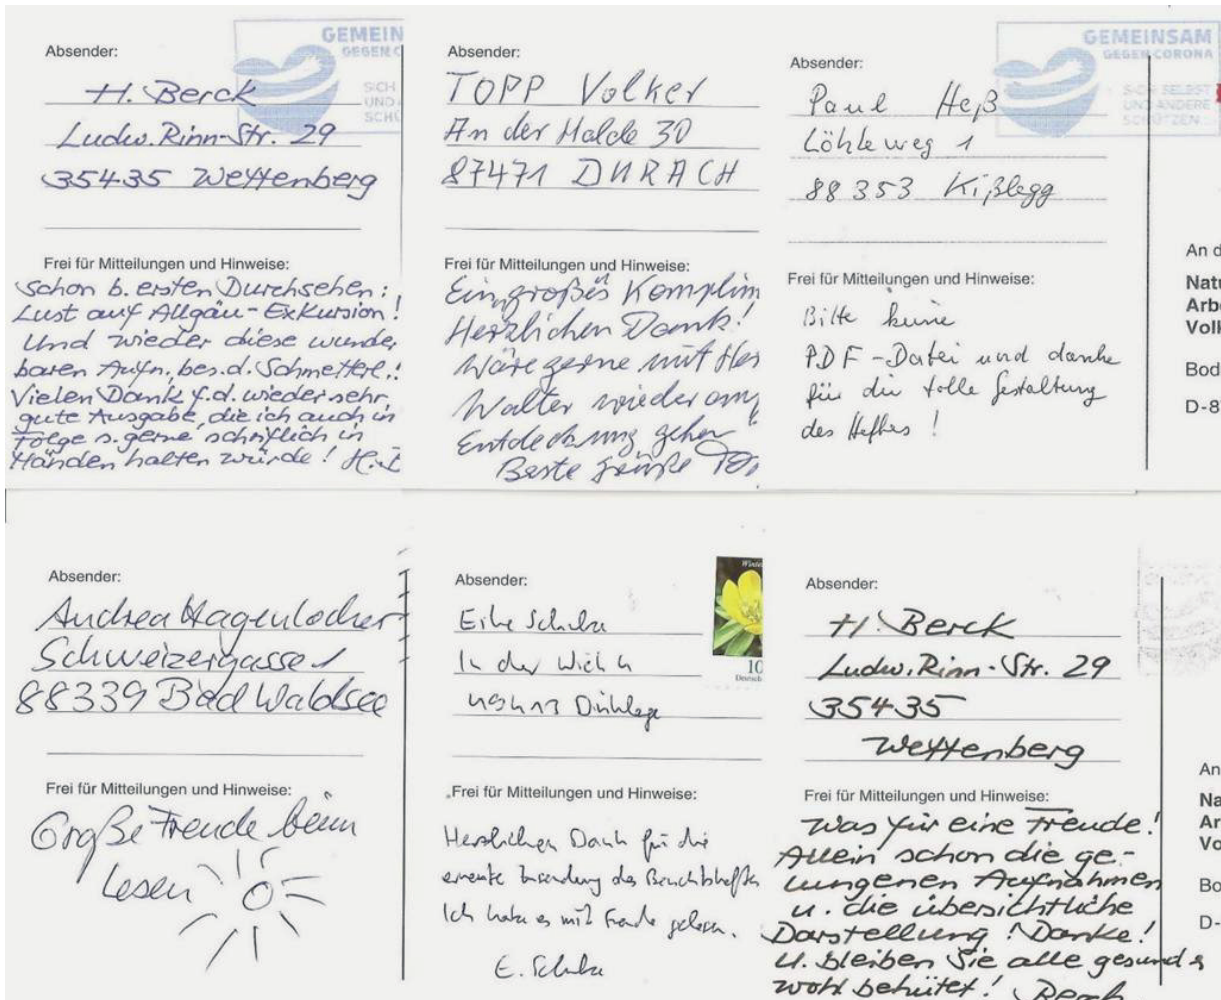 Absender:
H. Berck
Ludw. Rinn-Str. 29
35435 Wettenberg
Frei für Mitteilungen und Hinweise:
Schon b. ersten Durchsehen:
Lust auf Allgäu-Exkursion!
Und wieder diese wunder
baren Aufn., bes. d. Schmetterl.!
Vielen Dank f. d. wieder sehr
gute Ausgabe, die ich auch in
Folge s. gerne schriftlich in
Händen halten würde! H.
GEMEIN
GEGEN C
SICH
UND
SCHÜ
Absender:
TOPP Volker
An der Halde 30
87471 DURACH
Frei für Mitteilungen und Hinweise:
Ein großes Komplim
Herzlichen Dank!
Wäre gerne mit
Walter wieder auf
Entdeckung gehen
Beste Grüße
Absender:
Paul Heß
Löhleweg 1
88353 Kißlegg
Frei für Mitteilungen und Hinweise:
Bitte keine
PDF-Datei und danke
für die tolle Gestaltung
des Heftes!
GEMEINSAM
GEGEN CORONA
SICH SELBST
UND ANDERE
SCHÜTZEN
An d
Natu
Arb
Volk
Bod
D-8
Absender:
Andrea Hagenlocher
Schweizergasse 1
88339 Bad Waldsee
Frei für Mitteilungen und Hinweise:
Große Freude beim
Lesen
Absender:
Eike Schulze
In der Wiek 4
49413 Dinklage
Frei für Mitteilungen und Hinweise:
Herzlichen Dank für die
erneute Zusendung des Berichtsheftes
Ich habe es mit Freude gelesen.
E. Schulze
Winter
10
Deutsch
Absender:
H. Berck
Ludw. Rinn-Str. 29
35435
Wettenberg
Frei für Mitteilungen und Hinweise:
Was für eine Freude!
Allein schon die ge-
lungenen Aufnahmen
u. die übersichtliche
Darstellung! Danke!
U. bleiben Sie alle gesund &
wohl behütet! Berck
An
Na
Ar
Vo
Bo
D-